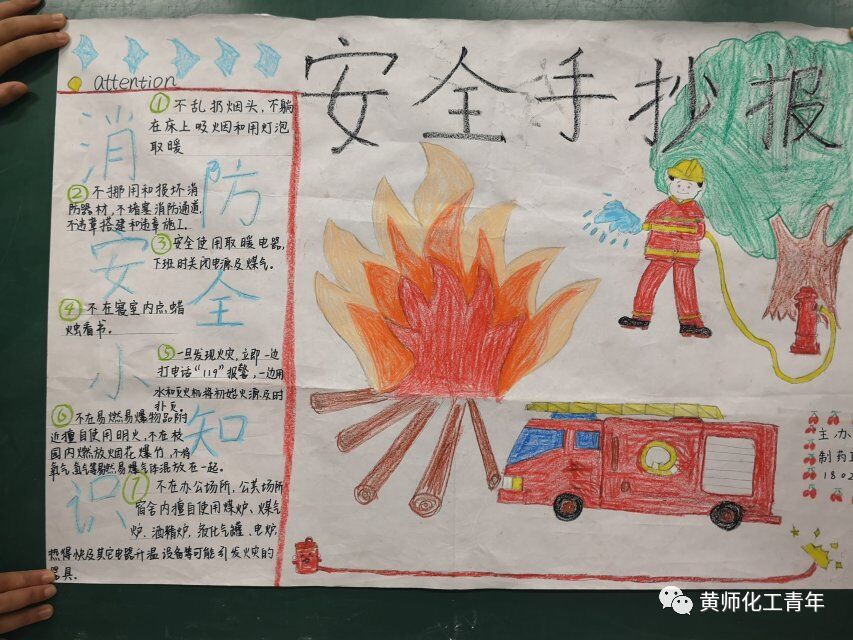 安全手抄报
attention
消防安全小知识
① 不乱扔烟头,不躺
在床上吸烟和用灯泡
取暖
② 不挪用和损坏消
防器材,不堵塞消防通道,
不违章搭建和违章施工.
③ 安全使用取暖电器,
下班时关闭电源及煤气。
④ 不在寝室内点蜡
烛看书。
⑤ 一旦发现火灾,立即一边
打电话“119”报警,一边用
水和灭火机将初始火源及时
扑灭。
⑥ 不在易燃易爆物品附
近擅自使用明火,不在校
园内燃放烟花爆竹,不将
氧气、氢气等易燃易爆气体混放在一起。
⑦ 不在办公场所,公共场所
宿舍内擅自使用煤炉、煤气
炉、酒精炉、液化气罐、电炉,
热得快及其它电器升温设备等可能引发火灾的
器具。
主办
制药
180
黄师化工青年